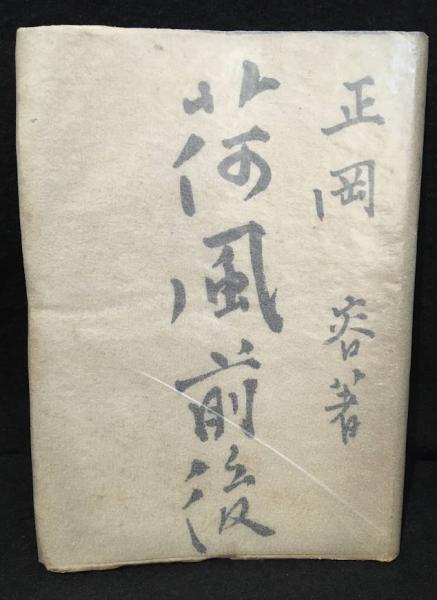 正岡 容著
荷風前後